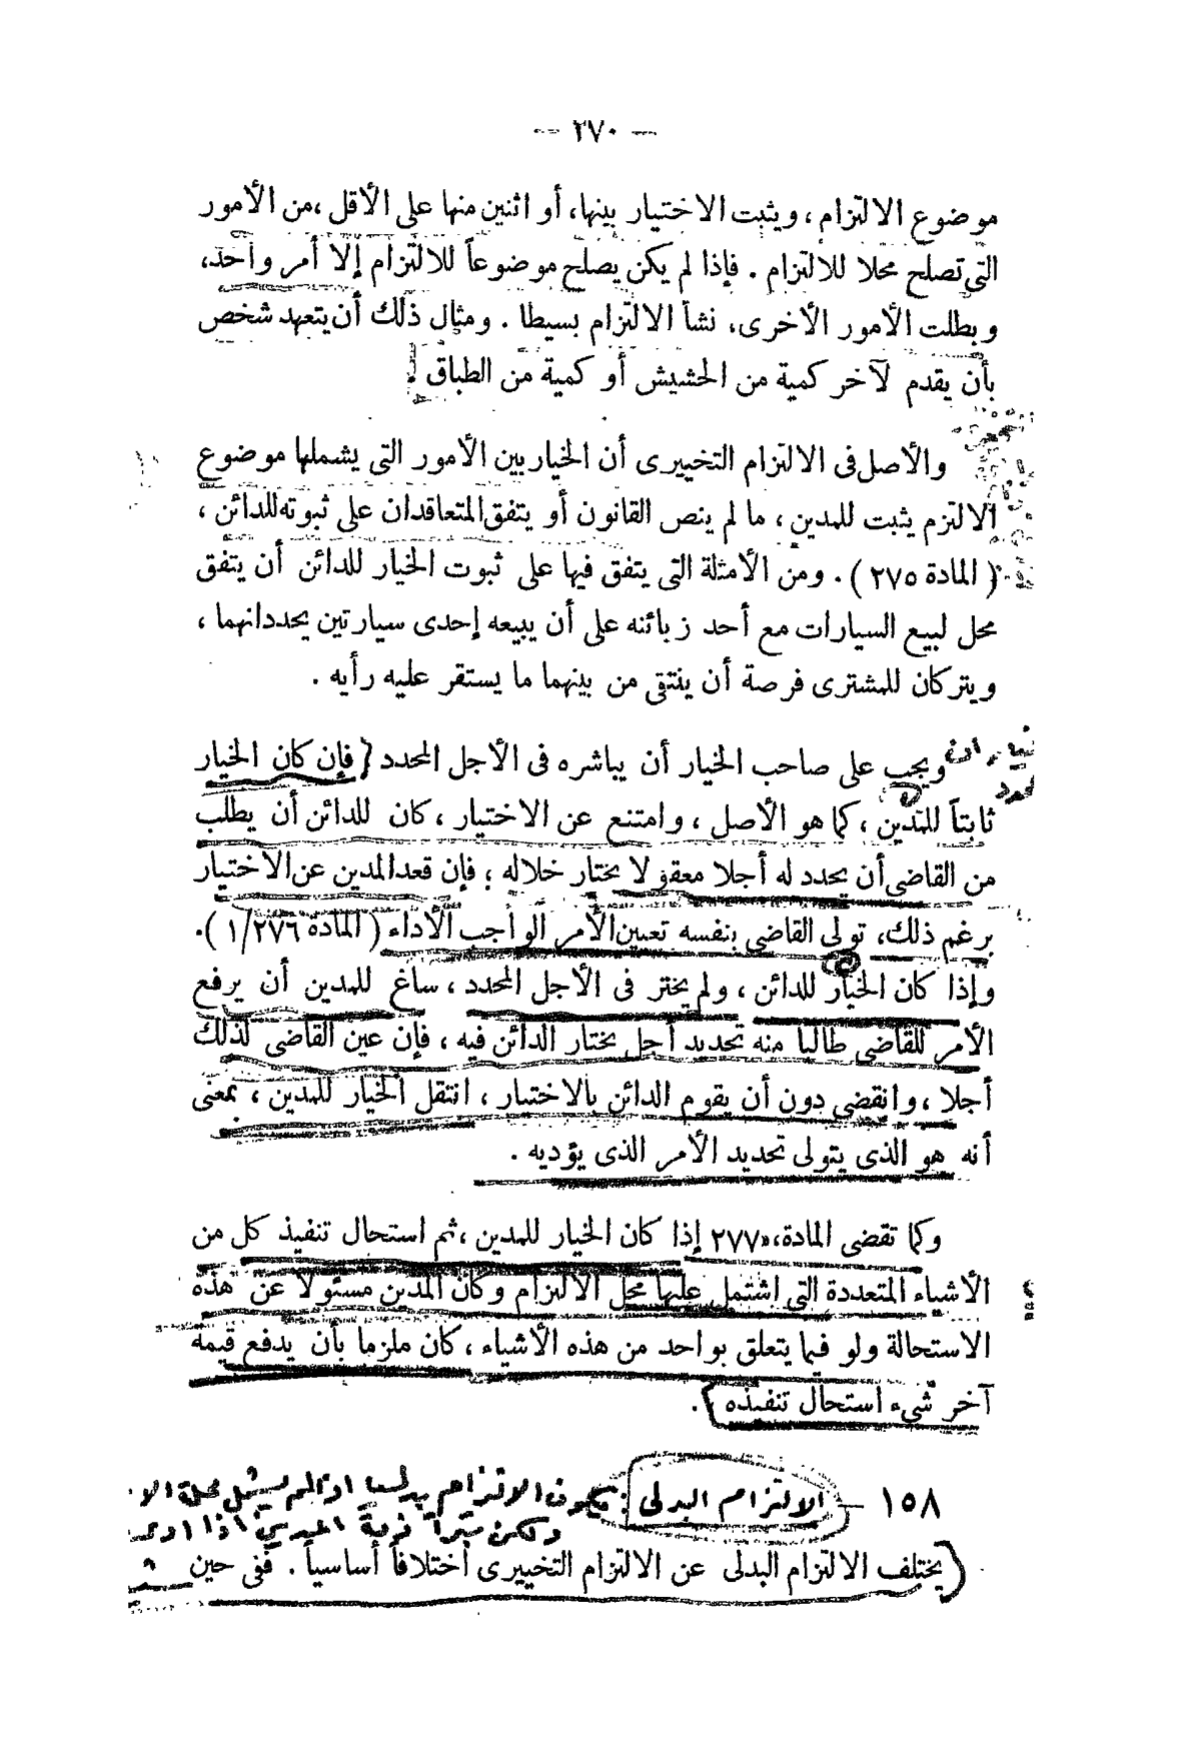 — ٢٧٠ —
موضوع الالتزام ، ويثبت الاختيار بينها ، أو اثنين منها على الأقل ، من الأمور
التى تصلح محلا للالتزام . فإذا لم يكن يصلح موضوعاً للالتزام إلا أمر واحد ،
وبطلت الأمور الأخرى ، نشأ الالتزام بسيطا . ومثال ذلك أن يتعهد شخص
بأن يقدم لآخر كمية من الحشيش أو كمية من الطباق .
والأصل فى الالتزام التخييرى أن الخيار بين الأمور التى يشملها موضوع
الالتزم يثبت للمدين ، ما لم ينص القانون أو يتفق المتعاقدان على ثبوته للدائن ،
( المادة ٢٧٥ ) . ومن الأمثلة التى يتفق فيها على ثبوت الخيار للدائن أن يتفق
محل لبيع السيارات مع أحد زبائنه على أن يبيعه إحدى سيارتين يحددانهما ،
ويتركان للمشترى فرصة أن ينتقى من بينهما ما يستقر عليه رأيه .
ويجب على صاحب الخيار أن يباشره فى الأجل المحدد { فإن كان الخيار
ثابتاً للمدين ، كما هو الأصل ، وامتنع عن الاختيار ، كان للدائن أن يطلب
من القاضى أن يحدد له أجلا معقولا يختار خلاله ؛ فإن قعد المدين عن الاختيار
برغم ذلك ، تولى القاضى بنفسه تعيين الأمر الواجب الأداء ( المادة ١/٢٧٦ ) .
وإذا كان الخيار للدائن ، ولم يختر فى الأجل المحدد ، ساغ للمدين أن يرفع
الأمر للقاضى طالبا منه تحديد أجل يختار الدائن فيه ، فإن عين القاضى لذلك
أجلا ، وانقضى دون أن يقوم الدائن بالاختيار ، انتقل الخيار للمدين ، بمعنى
أنه هو الذى يتولى تحديد الأمر الذى يؤديه .
وكما تقضى المادة ٢٧٧ إذا كان الخيار للمدين ، ثم استحال تنفيذ كل من
الأشياء المتعددة التى اشتمل عليها محل الالتزام وكان المدين مسئولا عن هذه
الاستحالة ولو فيما يتعلق بواحد من هذه الأشياء ، كان ملزما بأن يدفع قيمة
آخر شىء استحال تنفيذه } .
١٥٨ — الالتزام البدلى : يكون الالتزام بدلياً اذا لم يشمل محله الا
ولكن تبرأ ذمة المدين اذا ادى
( يختلف الالتزام البدلى عن الالتزام التخييرى اختلافاً أساسياً . ففى حين